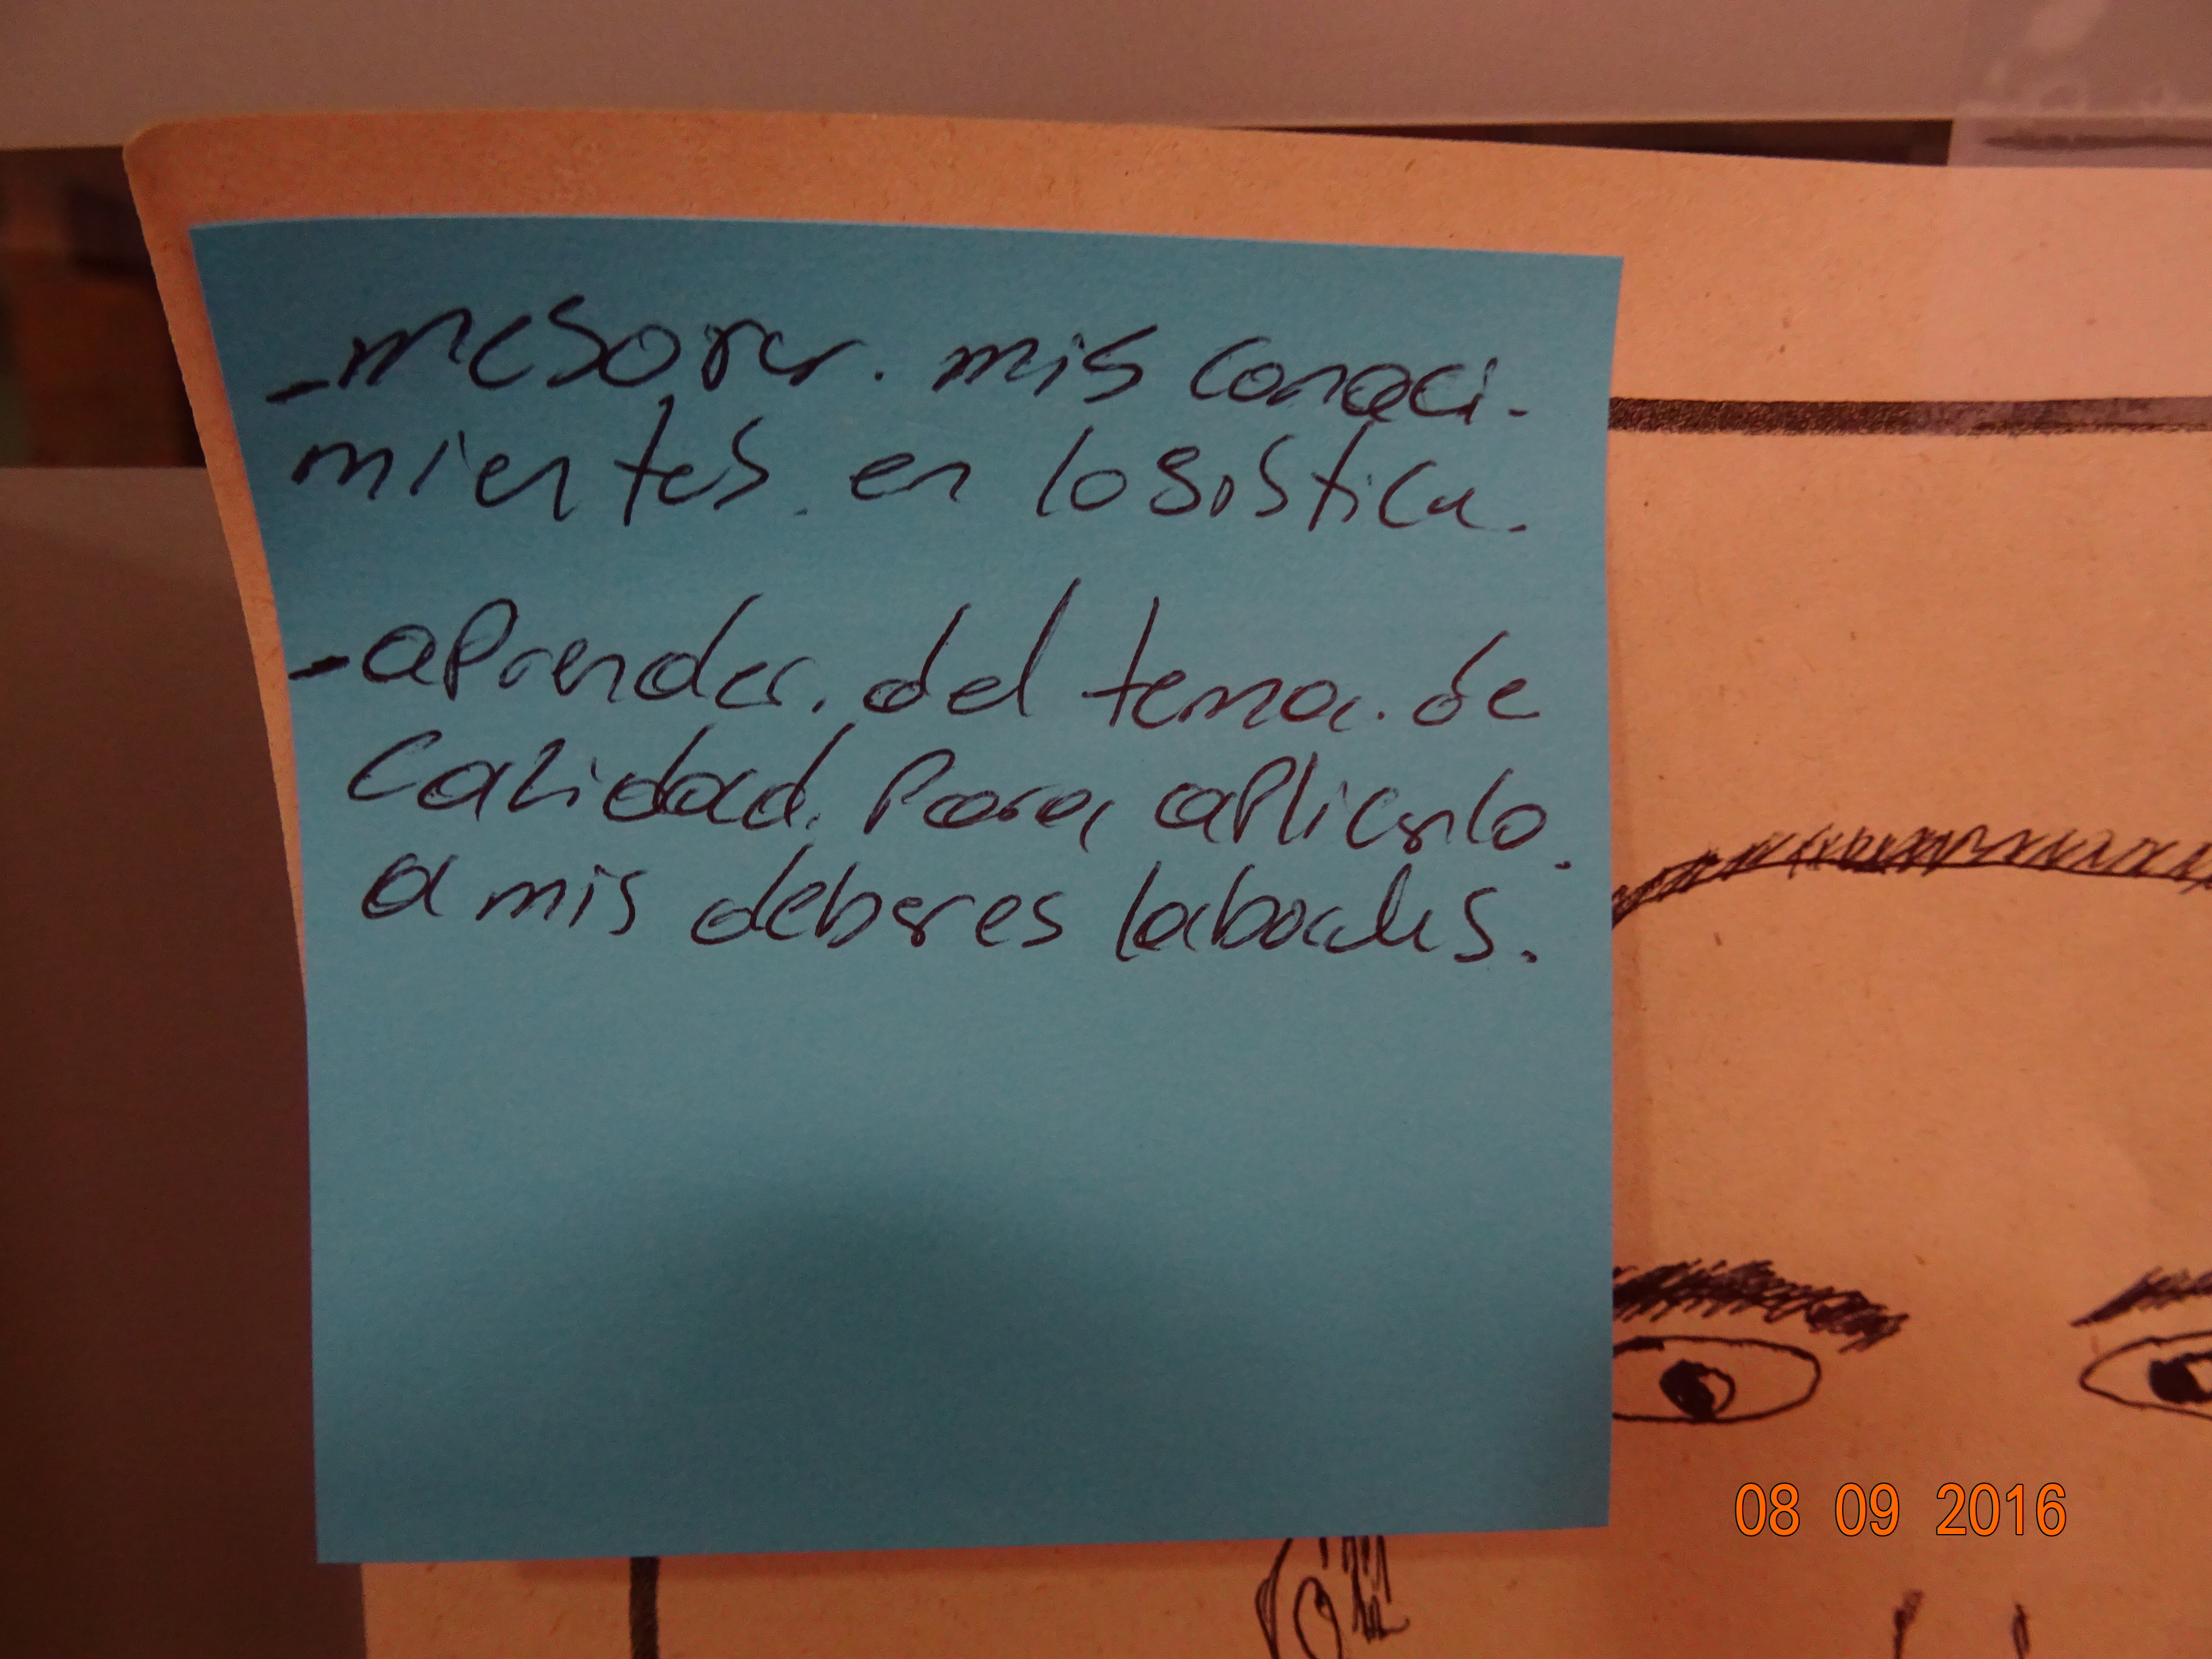 - mejorar. mis conoci-
mientos. en logística.
- aprender. del tema. de
calidad. para aplicarlo.
a mis deberes laborales.
08 09 2016